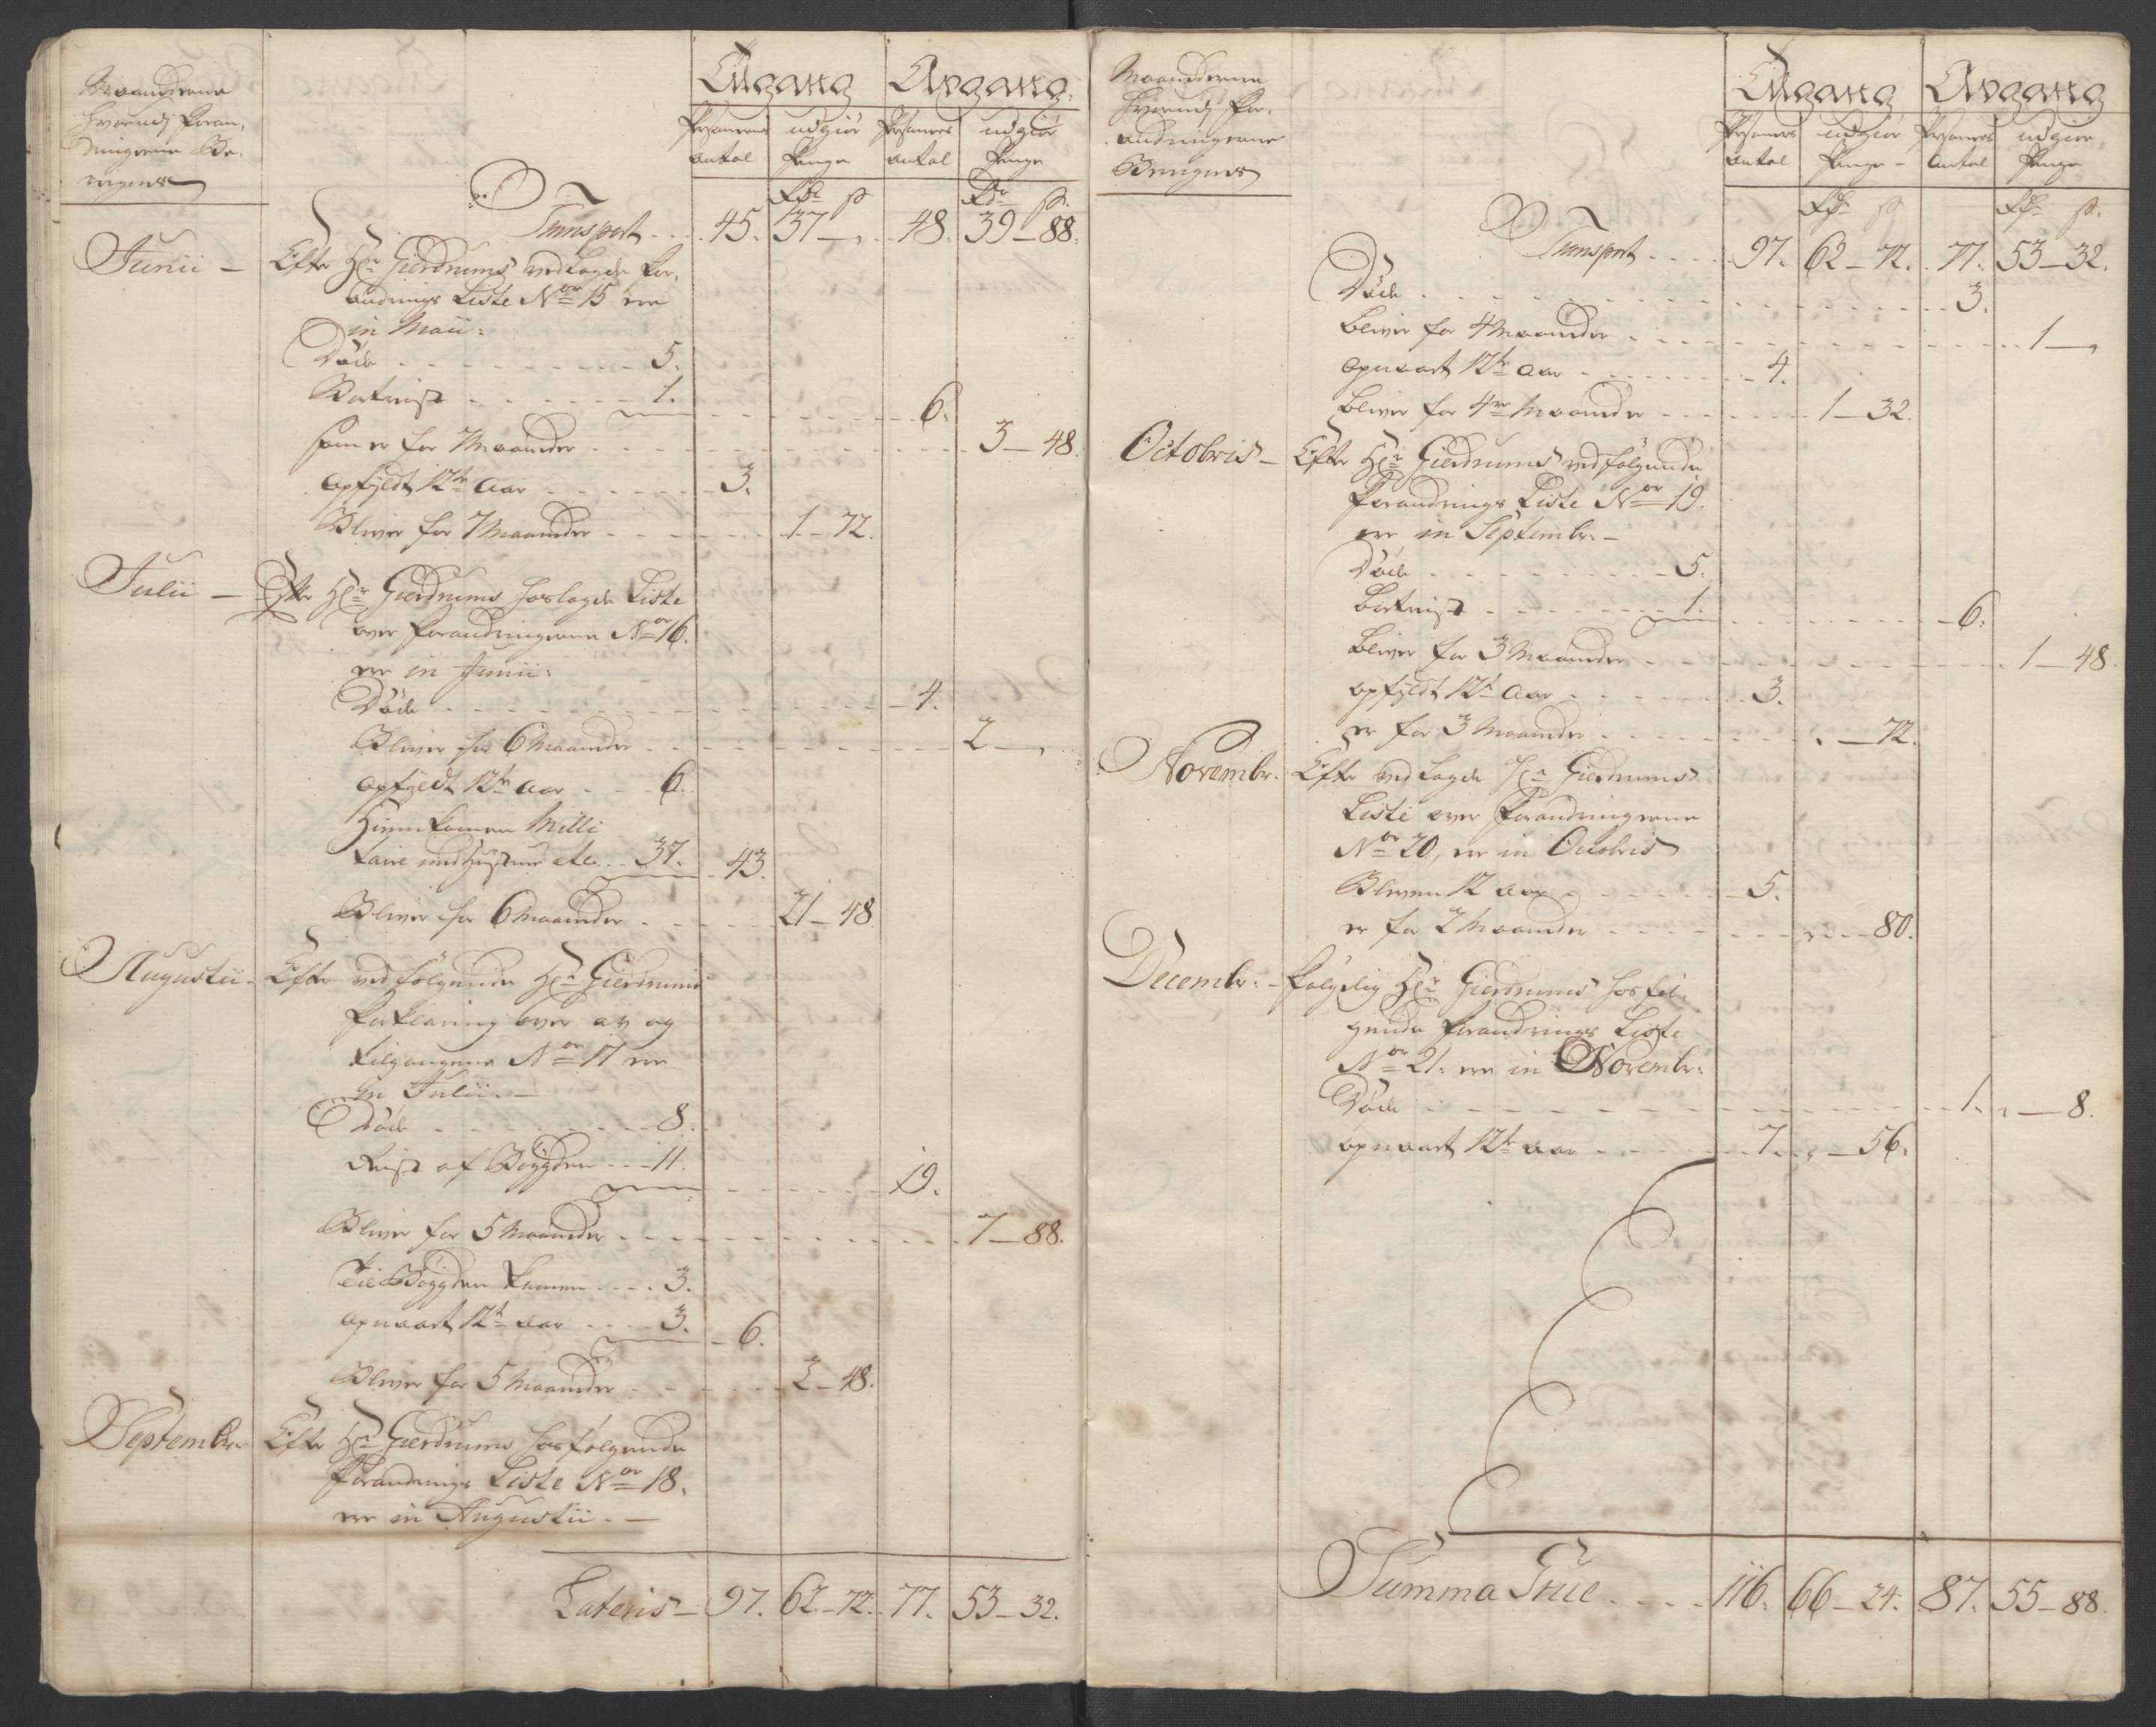 Maanderne
hvorudj Foran-
dringerne Be-
regnes
Tilgang
Avgang.
Personers antal
udgiør Penge
Personers antal
udgiør Penge
Rdr ß
Rdr ß.
Transport . . . 45. 37 — „ . . 48. 39 — 88.
Junii — Efter Hr Gierdrums vedlagde For-
andrings Liste Nor 15 ere
in Maii:
Døde . . . 5.
Bortreist . . . 1.
6.
som er for 7 Maaneder . . . 3 — 48.
opfyldt 12te Aar . . . 3.
Bliver for 7 Maaneder . . . 1 — 72.
Julii — Efter Hr Gierdrums hoslagde Liste
over Forandringerne Nor 16.
ere in Junii:
Døde . . . 4.
Bliver for 6 Maaneder . . . 2 — „
opfyldt 12te Aar . . . 6.
Hiemkomen Milli
taire med Hustruer etc. . . 37. 43.
Bliver for 6 Maaneder . . . 21 — 48
Augustii — Efter vedfølgende Hr Gierdrums
Forklaring over av og
tilgangene Nor 17 ere
in Julii. —
Døde . . . 8.
Reist af Bøygden . . . 11.
19.
Bliver for 5 Maaneder . . . 7 — 88.
Til Bøygden komen . . . 3.
opnaaet 12te aar . . . 3.
6.
Bliver for 5 Maaneder . . . 2 — 48.
Septembr. Efter Hr Gierdrums hosfølgende
Forandrings Liste Nor 18.
ere in Augustii. —
Lateris — 97. 62 — 72. 77. 53 — 32.
Maanederne
hvorudj For-
andringerne
Beregnes
Tilgang
Avgang
Personers antal
udgiør Penge
Personers antal
udgiøre Penge
Rdr ß
Rdr ß.
Transport . . . 97. 62 — 72. 77. 53 — 32.
Døde . . . 3.
bliver for 4 Maaneder . . . 1 — „
opnaaet 12te Aar . . . 4.
bliver for 4re Maaneder . . . 1 — 32.
Octobris — Efter Hr Gierdrums vedfølgende
Forandrings Liste Nor 19.
ere in Septembr. —
Døde . . . 5.
bortreist . . . 1.
6.
bliver for 3 Maaneder . . . 1 — 48.
opfyldt 12te Aar . . . 3.
er for 3 Maaneder . . . „ — 72.
Novembr. Efter vedlagde Hr Gierdrums
Liste over Forandringerne
Nor 20, ere in Octobris
Bleven 12 aar . . . 5.
er for 2 Maaneder . . . „ — 80.
Decembr. — Følgelig Hr Gierdrums hosføl-
gende Forandrings Liste
Nor 21. ere in Novembr:
Døde . . . 1. „ — 8.
opnaaet 12te aar . . . 7. „ — 56.
Summa True . . . 116. 66 — 24. 87. 55 — 88.